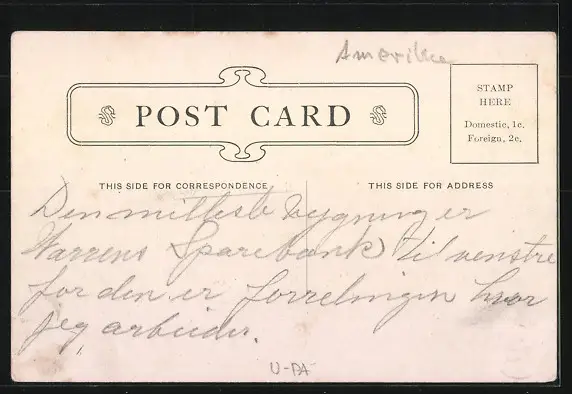 Amerika
STAMP
HERE
Domestic, 1c.
Foreign, 2c.
POST CARD
THIS SIDE FOR CORRESPONDENCE
THIS SIDE FOR ADDRESS
Den mitteste bygning er
Warrens Sparebank til venstre
for den er forretningen hvor
jeg arbeider.
U-PA